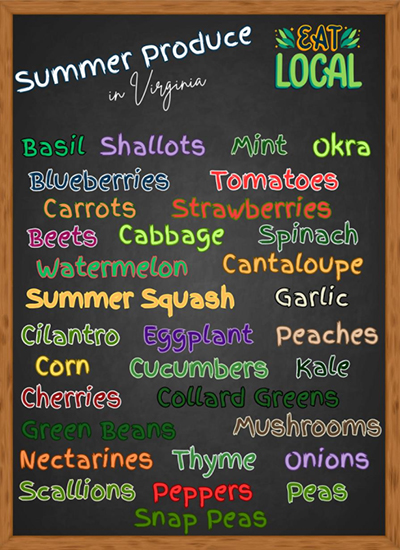 Summer Produce
in Virginia
EAT
LOCAL
Basil Shallots Mint Okra
Blueberries Tomatoes
Carrots Strawberries
Beets Cabbage Spinach
Watermelon Cantaloupe
Summer Squash Garlic
Cilantro Eggplant Peaches
Corn Cucumbers Kale
Cherries Collard Greens
Green Beans Mushrooms
Nectarines Thyme Onions
Scallions Peppers Peas
Snap Peas